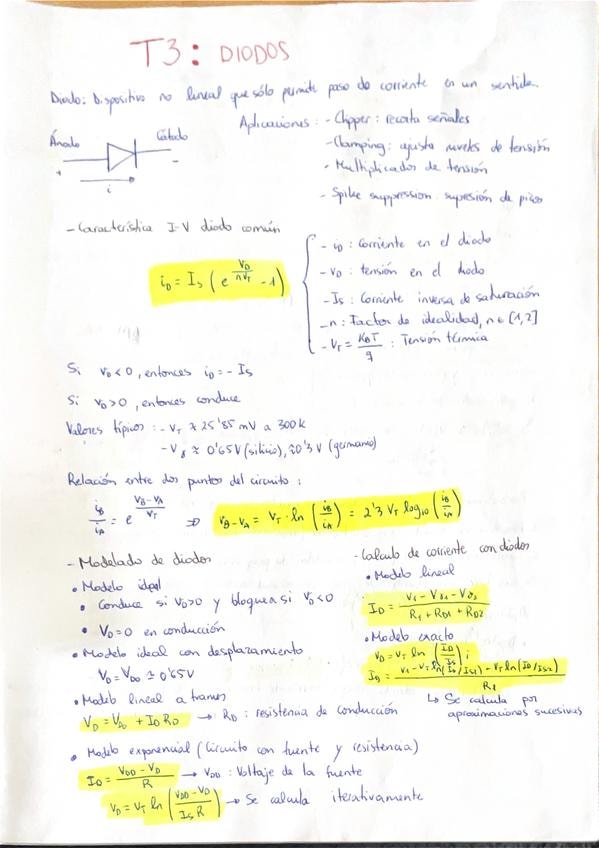 T3: DIODOS
Diodo: Dispositivo no lineal que sólo permite paso de corriente en un sentido.
Aplicaciones: - Clipper: recorta señales
- Clamping: ajusta niveles de tensión
- Multiplicador de tensión
- Spike suppression: supresión de picos
Ánodo Cátodo
+ -
i
- Característica I-V diodo común
i_D = I_S (e^(V_D/(nV_T)) - 1)
- i_D: Corriente en el diodo
- V_D: tensión en el diodo
- I_S: Corriente inversa de saturación
- n: Factor de idealidad, n ∈ [1,2]
- V_T = K_BT/q : Tensión térmica
Si V_D < 0, entonces i_D = - I_S
Si V_D > 0, entonces conduce
Valores típicos: - V_T ≈ 25'85 mV a 300k
- V_γ ≈ 0'65V (silicio), ≈0'3V (germanio)
Relación entre dos puntos del circuito:
i_B/i_A = e^((V_B-V_A)/V_T) ⇒ V_B-V_A = V_T · ln (i_B/i_A) = 2'3 V_T log₁₀ (i_B/i_A)
- Modelado de diodos
• Modelo ideal
• Conduce si V_D>0 y bloquea si V_D<0
• V_D=0 en conducción
• Modelo ideal con desplazamiento
V_D = V_D0 ≈ 0'65V
• Modelo lineal a tramos
V_D = V_D0 + I_D R_D → R_D: resistencia de conducción
• Modelo exponencial (Circuito con fuente y resistencia)
I_D = (V_DD - V_D)/R → V_DD: Voltaje de la fuente
V_D = V_T ln ((V_DD - V_D)/(I_S R)) → Se calcula iterativamente
- Calculo de corriente con diodos
• Modelo lineal
I_D = (V_1 - V_γ1 - V_γ2)/(R_1 + R_D1 + R_D2)
• Modelo exacto
V_D = V_T ln (I_D/I_S) ;
I_D = (V_1 - V_T ln(I_D/I_S1) - V_T ln(I_D/I_S2))/R_1
↳ Se calcula por
aproximaciones sucesivas